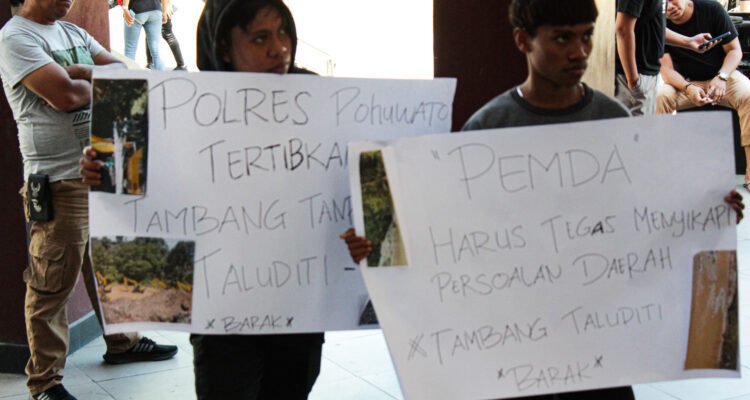 POLRES POHUWATO
TERTIBKA
TAMBANG TAN
TALUDITI -
*BARAK*
"PEMDA"
HARUS TEGAS MENYIKAPI
PERSOALAN DAERAH
*TAMBANG TALUDITI
*BARAK*